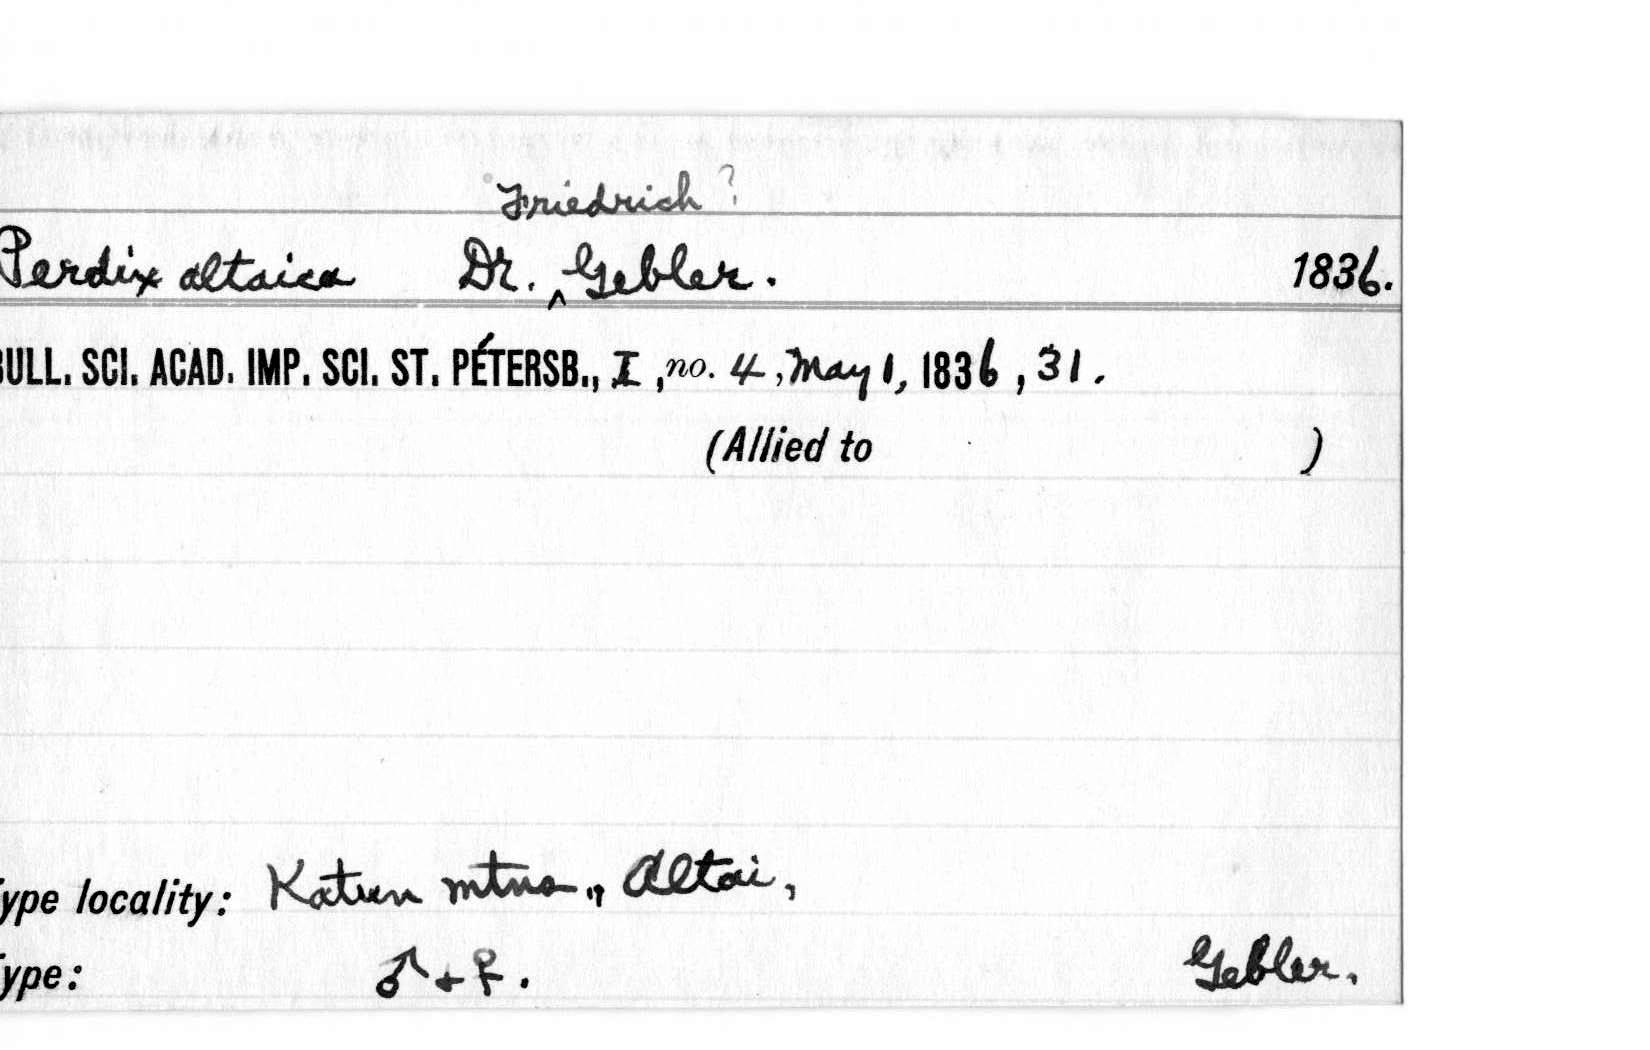 Friedrich ?
Perdix altaica Dr. ^ Gebler. 1836.
BULL. SCI. ACAD. IMP. SCI. ST. PÉTERSB., I, no. 4, May 1, 1836, 31.
(Allied to )
ype locality: Katun mtns., Altai,
ype: ♂ + ♀. Gebler.